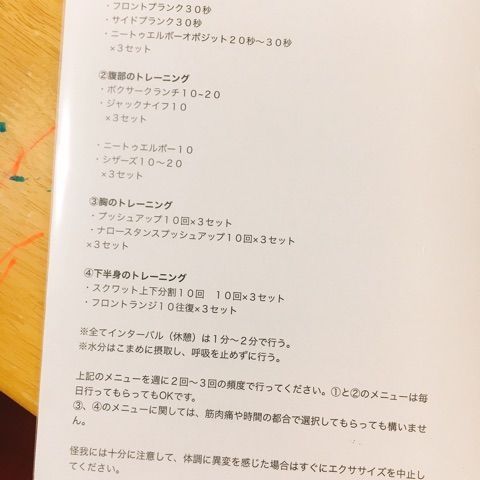 ・フロントプランク30秒
・サイドプランク30秒
・ニートゥエルボーオポジット20秒〜30秒
×3セット
②腹部のトレーニング
・ボクサークランチ10~20
・ジャックナイフ10
×3セット
・ニートゥエルボー10
・シザーズ10〜20
×3セット
③胸のトレーニング
・プッシュアップ10回×3セット
・ナロースタンスプッシュアップ10回×3セット
×3セット
④下半身のトレーニング
・スクワット上下分割10回　10回×3セット
・フロントランジ10往復×3セット
※全てインターバル（休憩）は1分〜2分で行う。
※水分はこまめに摂取し、呼吸を止めずに行う。
上記のメニューを週に2回〜3回の頻度で行ってください。①と②のメニューは毎
日行ってもらってもOKです。
③、④のメニューに関しては、筋肉痛や時間の都合で選択してもらっても構いませ
ん。
怪我には十分に注意して、体調に異変を感じた場合はすぐにエクササイズを中止し
てください。